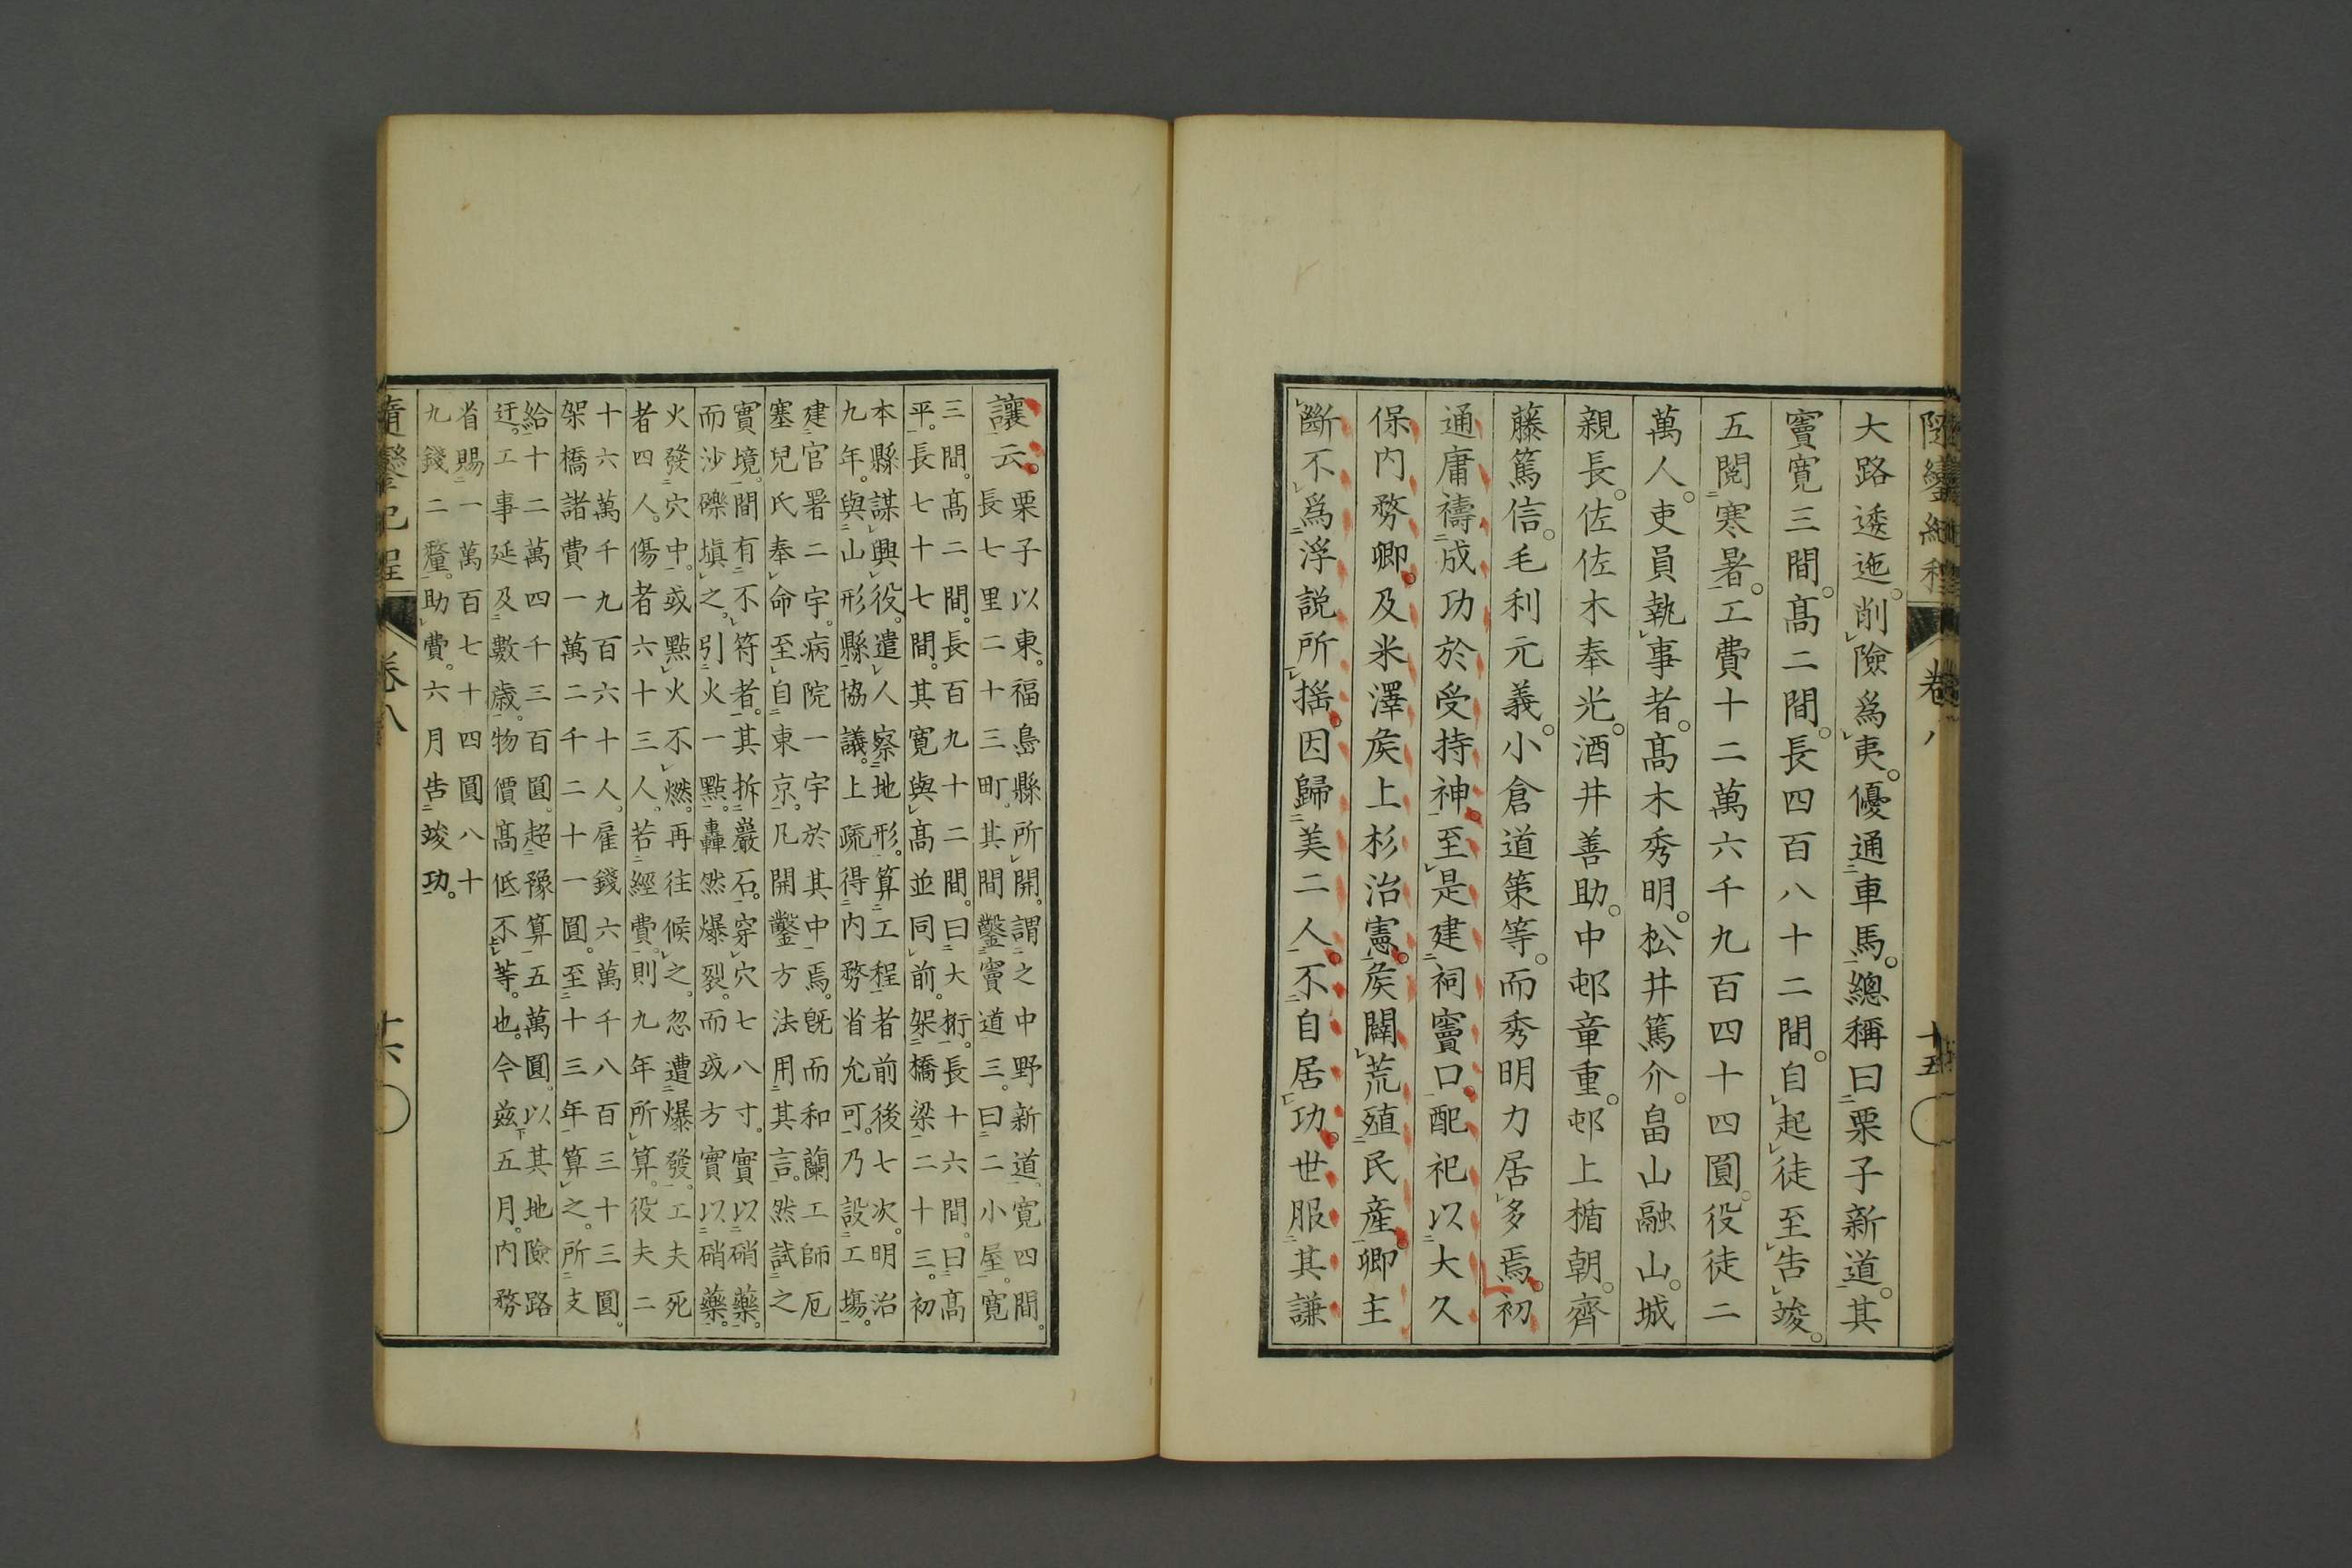 大路逶迤。削險爲夷。優通車馬。總稱曰栗子新道。其
竇寬三間。髙二間。長四百八十二間。自起徒至告竣。
五閲寒暑。工費十二萬六千九百四十四圓。役徒二
萬人。吏員執事者。髙木秀明。松井篤介。畠山融山。城
親長。佐佐木奉光。酒井善助。中邨章重。邨上楯朝。齊
藤篤信。毛利元義。小倉道策等。而秀明力居多焉。初
通庸禱成功於受持神。至是建祠竇口。配祀以大久
保内務卿。及米澤矦上杉治憲。矦闢荒殖民産。卿主
斷不爲浮説所揺。因歸美二人。不自居功。世服其謙
隨鑾紀程 卷八 十五
讓云。
栗子以東。福島縣所開。謂之中野新道。寬四間。
長七里二十三町。其間鑿竇道三。曰二小屋。寬
三間。髙二間。長百九十二間。曰大桁。長十六間。曰髙
平。長七十七間。其寬與髙並同前。架橋梁二十三。初
本縣謀興役。遣人察地形。算工程者前後七次。明治
九年。與山形縣協議。上疏得内務省允可。乃設工塲。
建官署二宇。病院一宇於其中焉。旣而和蘭工師厄
塞兒氏奉命至自東京。凡開鑿方法用其言。然試之
實境。間有不符者。其拆巖石。穿穴七八寸。實以硝藥。
而沙礫塡之。引火一點。轟然爆裂。而或方實以硝藥。
火發穴中。或點火不燃。再往候之。忽遭爆發。工夫死
者四人。傷者六十三人。若經費。則九年所算。役夫二
十六萬千九百六十人。雇錢六萬千八百三十三圓。
架橋諸費一萬二千二十一圓。至十三年算之。所支
給十二萬四千三百圓。超豫算五萬圓。以其地險路
迂。工事延及數歳。物價髙低不等也。今玆五月。内務
省賜一萬百七十四圓八十
九錢二釐。助費。六月告竣功。
隨鑾紀程 卷八 十六